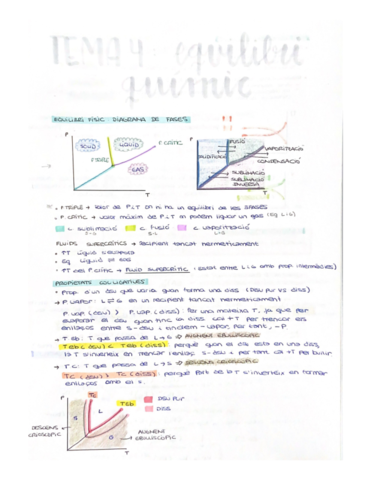 TEMA 4: equilibri
químic
EQUILIBRI FÍSIC: DIAGRAMA DE FASES
P
SÒLID
LÍQUID
P. CRÍTIC
P. TRIPLE
GAS
T
P
FUSIÓ
VAPORITZACIÓ
CONDENSACIÓ
SUBLIMACIÓ
SUBLIMACIÓ
INVERSA
T
• P. TRIPLE → valor de P i T on hi ha un equilibri de les 3 FASES
• P. CRÍTIC → valor màxim de P i T on podem liquar un gas (Eq L-G)
c. sublimació
c. fusió
c. vaporització
FLUIDS SUPERCRÍTICS → Recipient tancat hermèticament
• PT líquid
• Eq líquid
• PT del P. crític → FLUID SUPERCRÍTIC: estat entre L i G amb prop. intermèdies)
PROPIETATS COL·LIGATIVES
• Prop. d'un dsv que varia quan forma una diss (Dsv pur vs diss)
→ P. VAPOR: L ⇌ G en un recipient tancat hermèticament
P. vap (dsv) > P. vap (diss). Per una mateixa T, ja que per
evaporar el dsv quan tinc la diss cal + T per trencar els
enllaços entre s-dsv i tindrem - vapor, per tant, -P
→ T eb: T que passa de L → G ⇒ AUGMENT EBULLOSCÒPIC
Teb (dsv) < Teb (diss): perquè quan el dsv està en una diss,
la T s'inverteix en trencar l'enllaç s-dsv i per tant cal + T per bullir
→ T c: T que passa de L → S ⇒ DESCENS CRIOSCÒPIC
Tc (dsv) > Tc (diss): perquè part de la T s'inverteix en formar
enllaços
P
Tc
Teb
S
L
G
DESCENS
CRIOSCÒPIC
AUGMENT
EBULLOSCÒPIC
T
DSV PUR
DISS